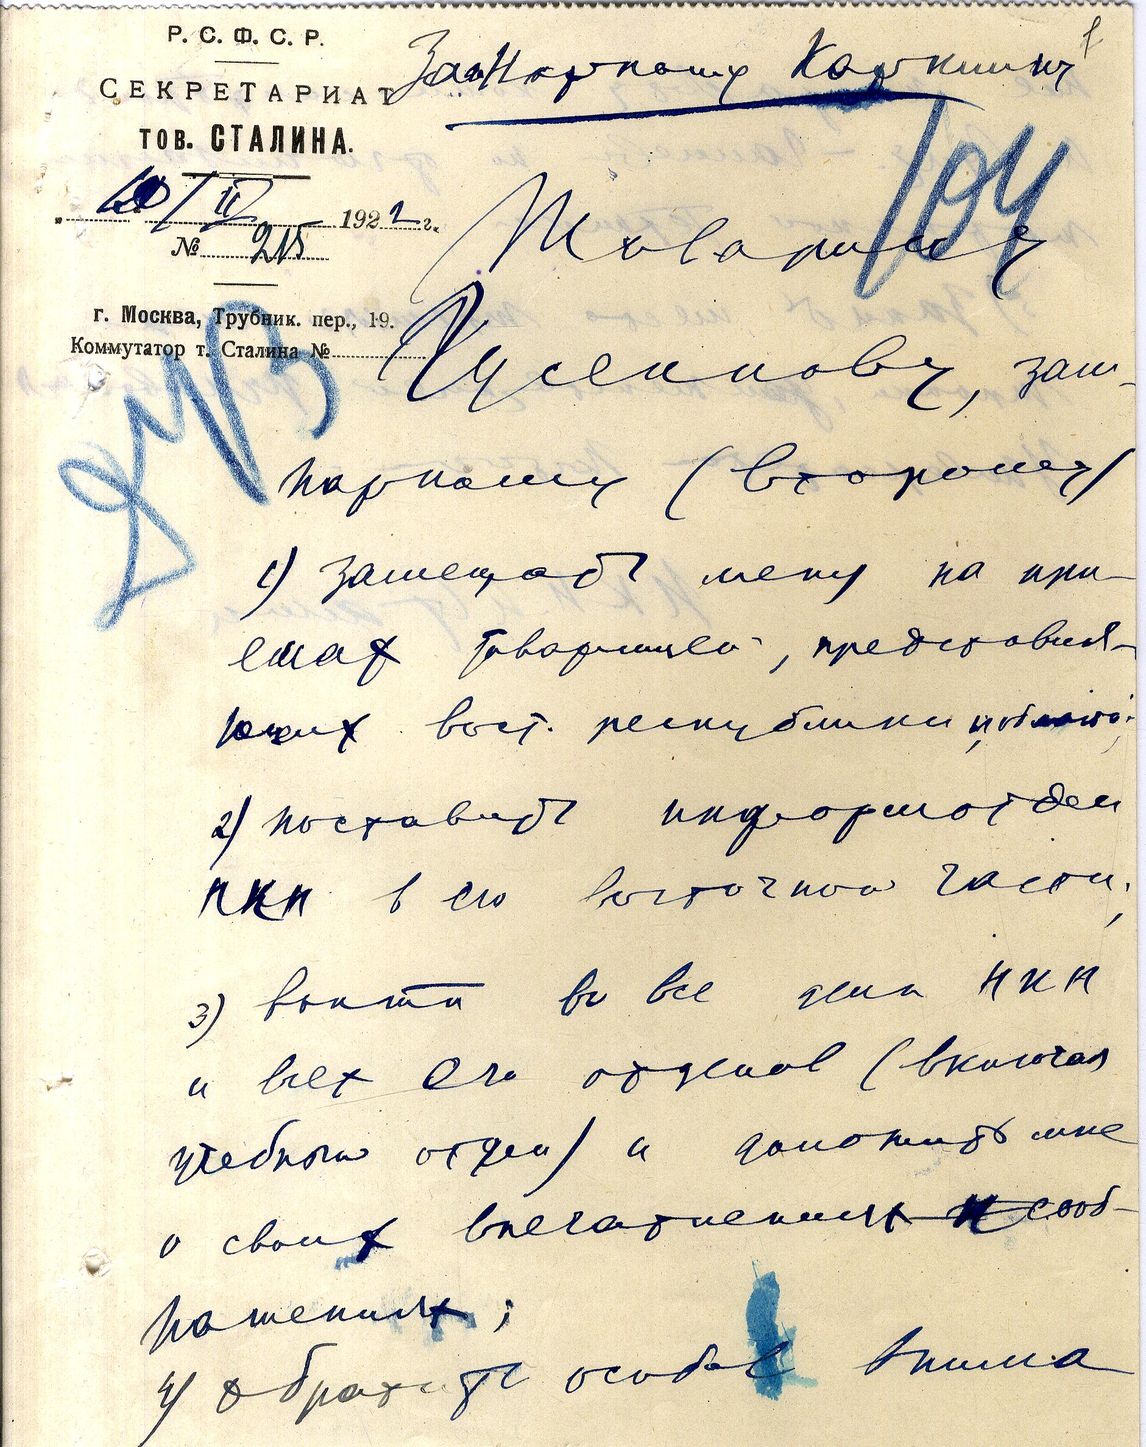 Р. С. Ф. С. Р.
СЕКРЕТАРИАТ
тов. СТАЛИНА.
II 1922 г.
№ 215
г. Москва, Трубник. пер., 19.
Коммутатор т. Сталина №
104
Товарищу
Гусейнову, зам-
наркому (второму)
1) замещать меня на при-
емах товарищей, представля-
ющих вост. республики и области;
2) поставить информотдел
НКН в его восточной части;
3) войти во все дела НКН
и всех его отделов (включая
учебный отдел) и доложить мне
о своих впечатлениях и сооб-
ражениях;
4) обратить особое внима